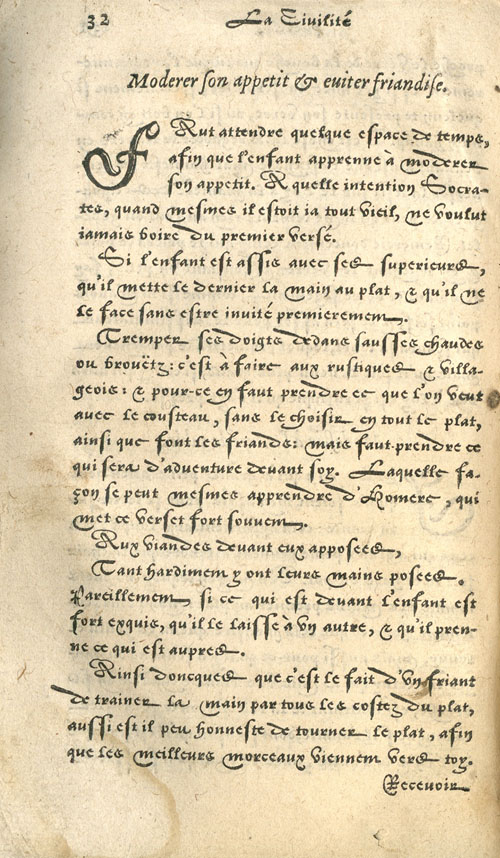 32 La Civilité
Moderer son appetit & euiter friandise.
FAut attendre quelque espace de temps,
afin que l'enfant apprenne à moderer
son appetit. A quelle intention Socra-
tes, quand mesmes il estoit ia tout vieil, ne voulut
iamais boire du premier versé.
Si l'enfant est assis auec ses superieurs,
qu'il mette le dernier la main au plat, & qu'il ne
le face sans estre inuité premierement.
Tremper ses doigts dedans sausses chaudes
ou brouëtz: c'est à faire aux rustiques & villa-
geois: & pour-ce en faut prendre ec que l'on veut
auec le cousteau, sans le choisir en tout le plat,
ainsi que font les friands: mais faut-prendre ce
qui sera d'aduenture deuant soy. Laquelle fa-
çon se peut mesmes apprendre d'Homere, qui
met ce verset fort souuent.
Aux viandes deuant eux apposees,
Tant hardiment y ont leurs mains posees.
Pareillement, si ce qui est deuant l'enfant est
fort exquis, qu'il le laisse à vn autre, & qu'il pren-
ne ce qui est aupres.
Ainsi doncques que c'est le fait d'vn friant
de trainer la main par tous les costez du plat,
aussi est il peu honneste de tourner le plat, afin
que les meilleurs morceaux viennent vers toy.
Receuoir